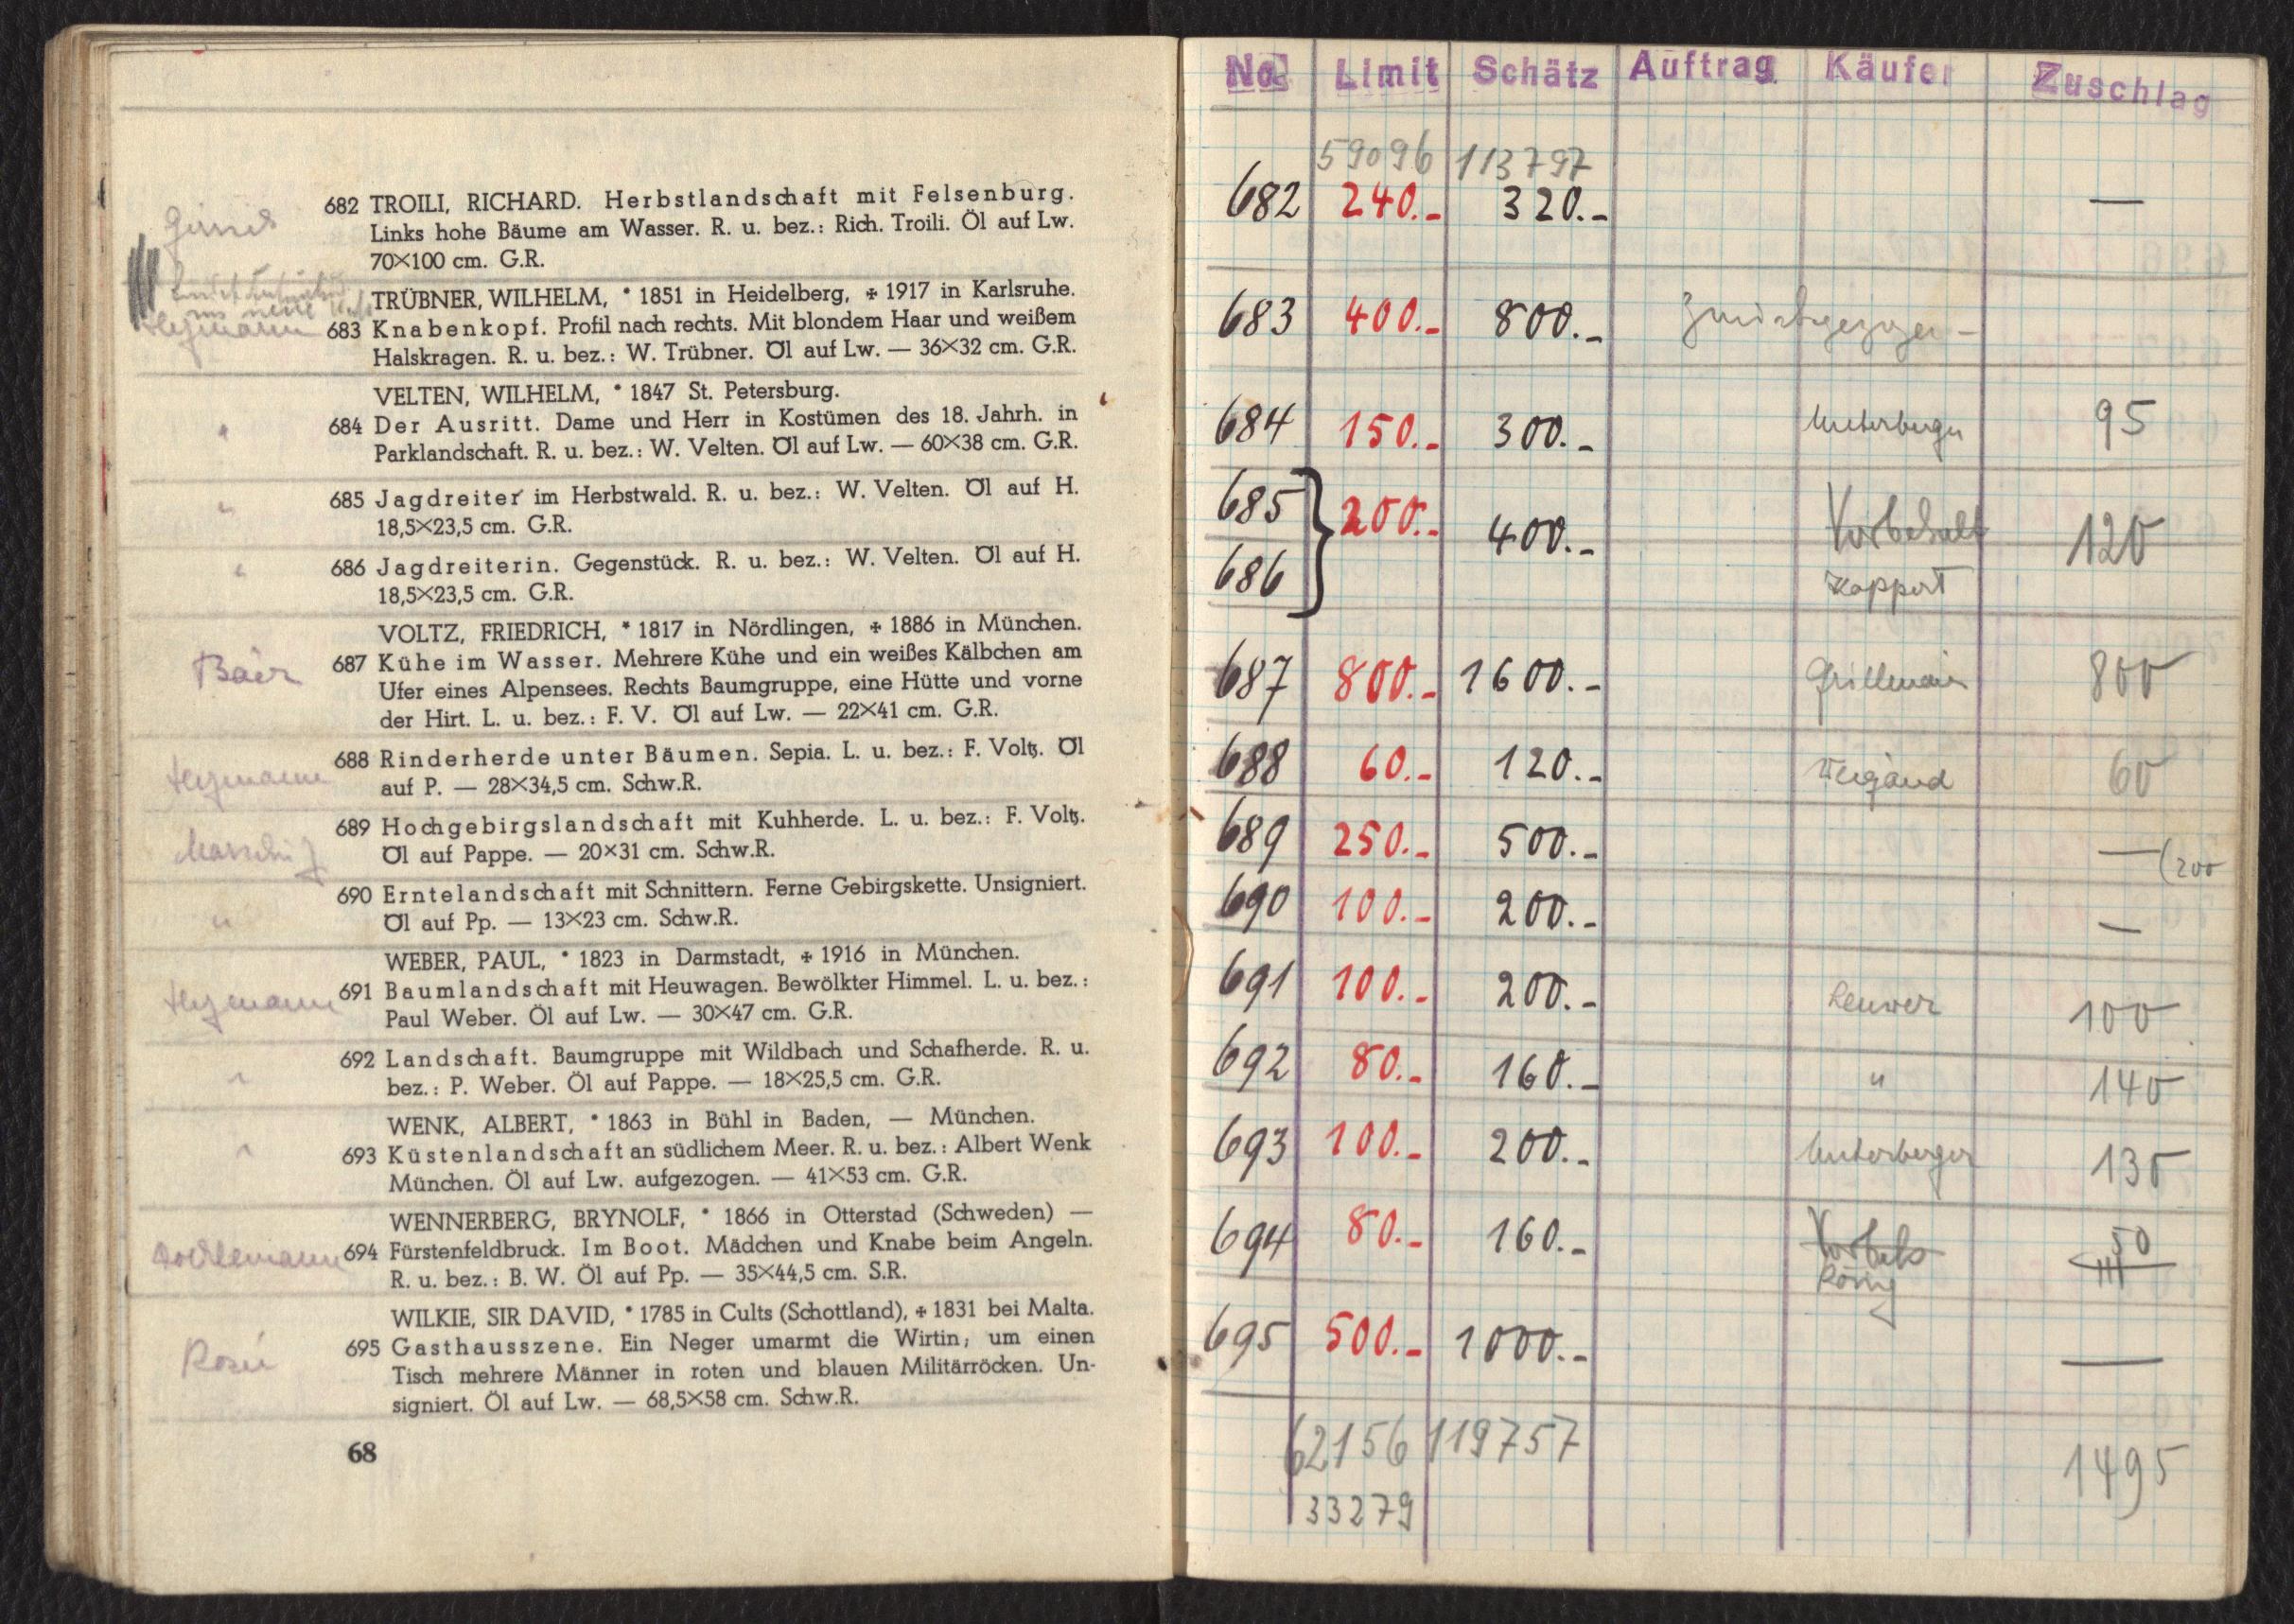 682 TROILI, RICHARD. Herbstlandschaft mit Felsenburg.
Links hohe Bäume am Wasser. R. u. bez.: Rich. Troili. Öl auf Lw.
70×100 cm. G.R.
TRÜBNER, WILHELM, * 1851 in Heidelberg, ✢ 1917 in Karlsruhe.
Heymann 683 Knabenkopf. Profil nach rechts. Mit blondem Haar und weißem
Halskragen. R. u. bez.: W. Trübner. Öl auf Lw. — 36×32 cm. G.R.
VELTEN, WILHELM, * 1847 St. Petersburg.
" 684 Der Ausritt. Dame und Herr in Kostümen des 18. Jahrh. in
Parklandschaft. R. u. bez.: W. Velten. Öl auf Lw. — 60×38 cm. G.R.
" 685 Jagdreiter im Herbstwald. R. u. bez.: W. Velten. Öl auf H.
18,5×23,5 cm. G.R.
" 686 Jagdreiterin. Gegenstück. R. u. bez.: W. Velten. Öl auf H.
18,5×23,5 cm. G.R.
VOLTZ, FRIEDRICH, * 1817 in Nördlingen, ✢ 1886 in München.
Baer 687 Kühe im Wasser. Mehrere Kühe und ein weißes Kälbchen am
Ufer eines Alpensees. Rechts Baumgruppe, eine Hütte und vorne
der Hirt. L. u. bez.: F. V. Öl auf Lw. — 22×41 cm. G.R.
Heymann 688 Rinderherde unter Bäumen. Sepia. L. u. bez.: F. Voltz. Öl
auf P. — 28×34,5 cm. Schw.R.
689 Hochgebirgslandschaft mit Kuhherde. L. u. bez.: F. Voltz.
Öl auf Pappe. — 20×31 cm. Schw.R.
" 690 Erntelandschaft mit Schnittern. Ferne Gebirgskette. Unsigniert.
Öl auf Pp. — 13×23 cm. Schw.R.
WEBER, PAUL, * 1823 in Darmstadt, ✢ 1916 in München.
Heymann 691 Baumlandschaft mit Heuwagen. Bewölkter Himmel. L. u. bez.:
Paul Weber. Öl auf Lw. — 30×47 cm. G.R.
" 692 Landschaft. Baumgruppe mit Wildbach und Schafherde. R. u.
bez.: P. Weber. Öl auf Pappe. — 18×25,5 cm. G.R.
WENK, ALBERT, * 1863 in Bühl in Baden, — München.
" 693 Küstenlandschaft an südlichem Meer. R. u. bez.: Albert Wenk
München. Öl auf Lw. aufgezogen. — 41×53 cm. G.R.
WENNERBERG, BRYNOLF, * 1866 in Otterstad (Schweden) —
694 Fürstenfeldbruck. Im Boot. Mädchen und Knabe beim Angeln.
R. u. bez.: B. W. Öl auf Pp. — 35×44,5 cm. S.R.
WILKIE, SIR DAVID, * 1785 in Cults (Schottland), ✢ 1831 bei Malta.
695 Gasthausszene. Ein Neger umarmt die Wirtin; um einen
Tisch mehrere Männer in roten und blauen Militärröcken. Un-
signiert. Öl auf Lw. — 68,5×58 cm. Schw.R.
68
No Limit Schätz Auftrag Käufer Zuschlag
59096 113797
682 240.- 320.- —
683 400.- 800.- Zurückgezogen -
684 150.- 300.- Unterberger 95
685 } 200.- 400.- Vorbehalt 120
686 Kappert
687 800.- 1600.- Grillmaier 800
688 60.- 120.- Weigand 60
689 250.- 500.- — (200
690 100.- 200.- —
691 100.- 200.- Leuwer 100
692 80.- 160.- " 140
693 100.- 200.- Unterberger 130
694 80.- 160.- Vorbeh 50
König
695 500.- 1000.- —
62156 119757 1495
33279